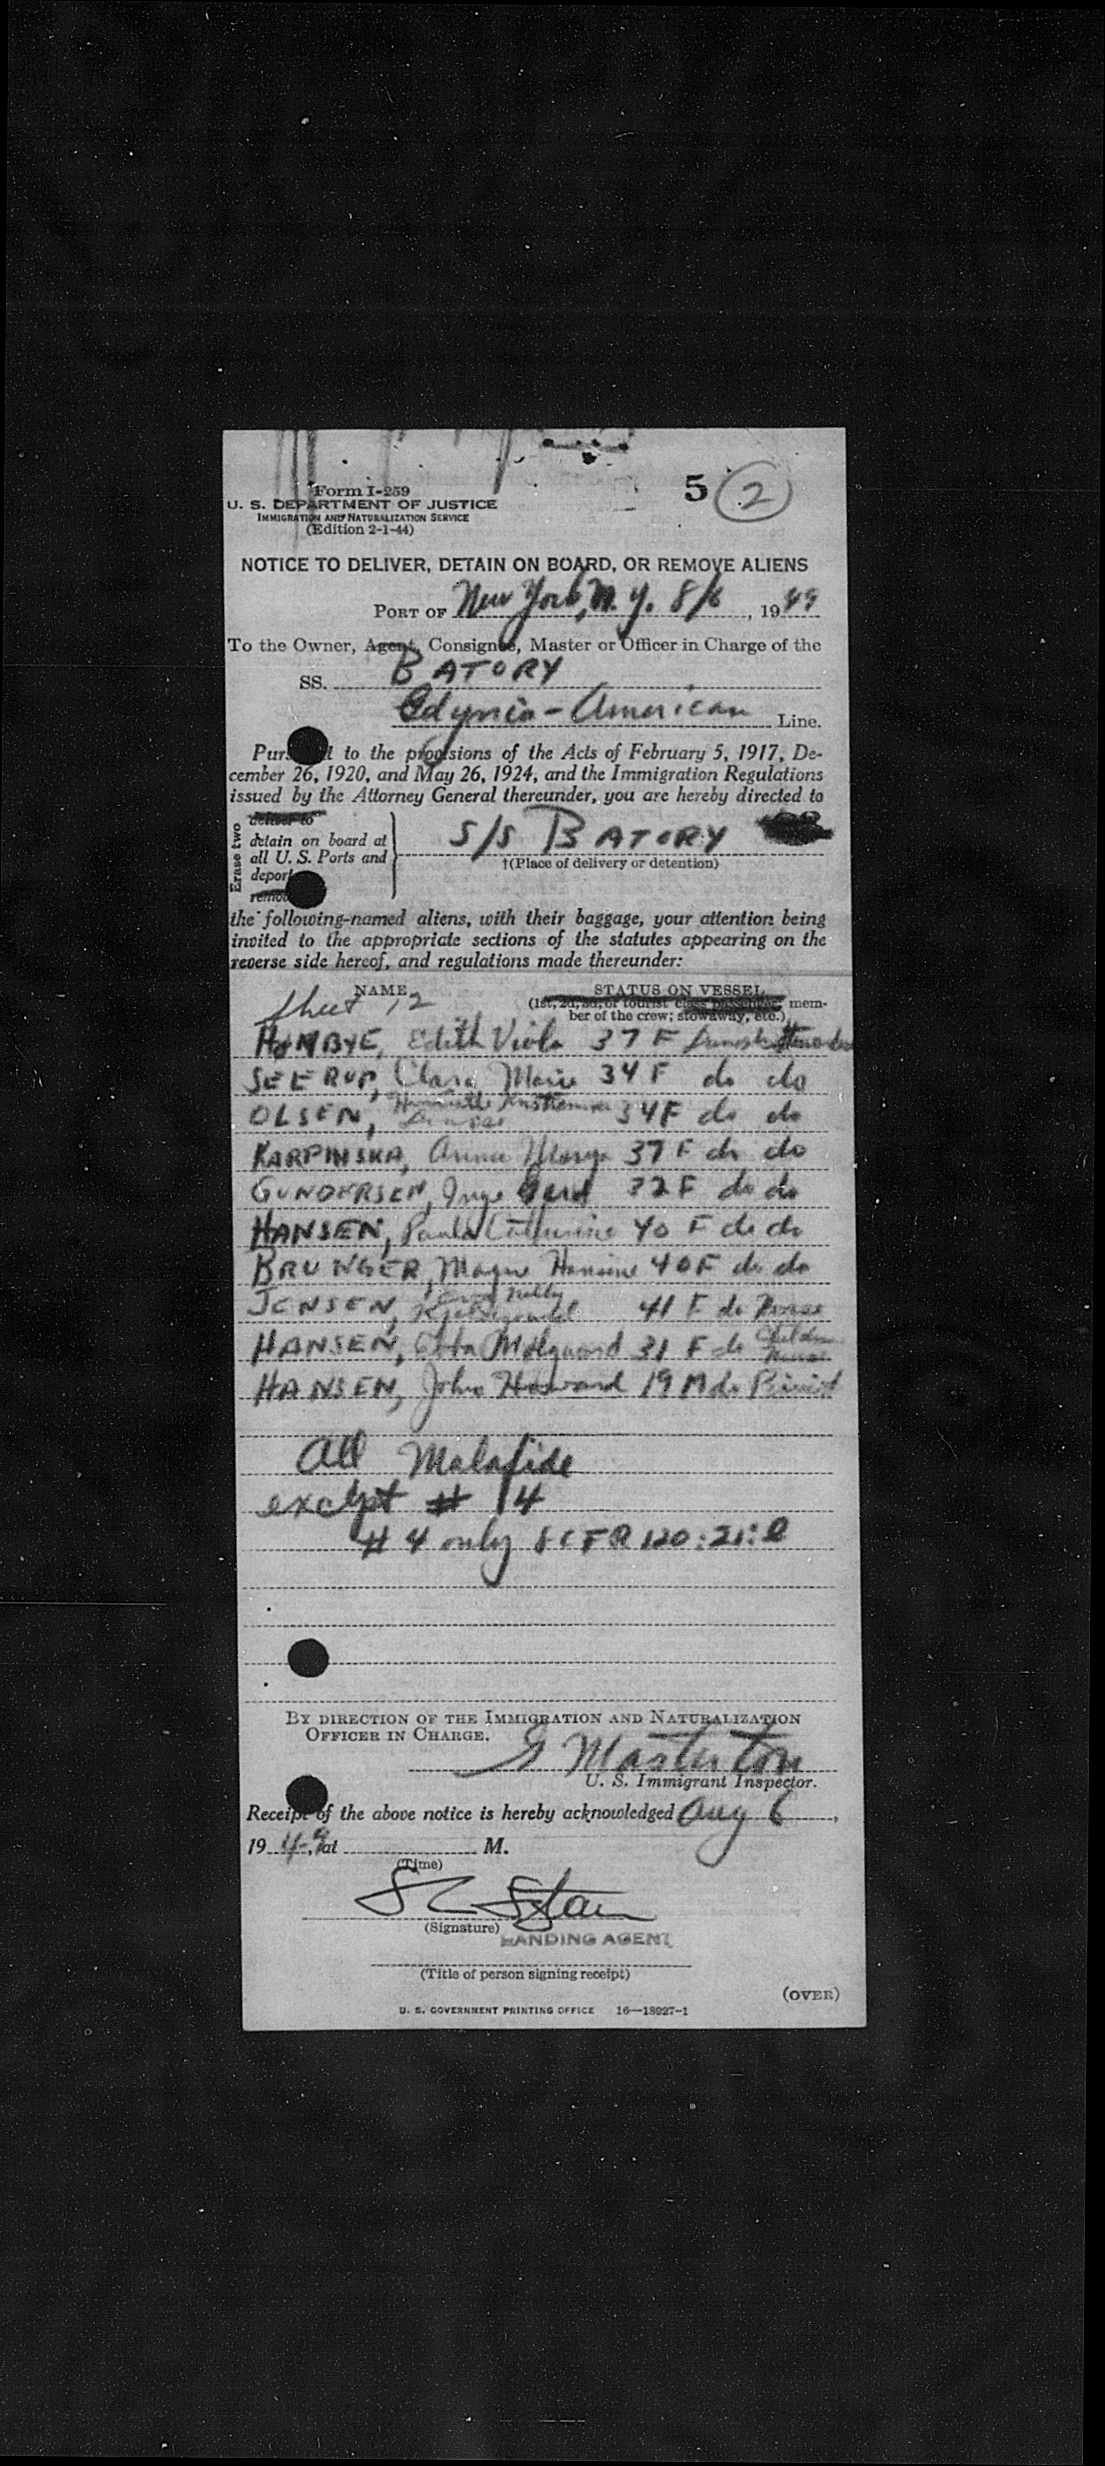 5 2
Form I-259
U. S. DEPARTMENT OF JUSTICE
IMMIGRATION AND NATURALIZATION SERVICE
(Edition 2-1-44)
NOTICE TO DELIVER, DETAIN ON BOARD, OR REMOVE ALIENS
PORT OF New York, N. Y. 8/6, 1949
To the Owner, Agent, Consignee, Master or Officer in Charge of the
SS. BATORY
Gdynia-American Line.
to the provisions of the Acts of February 5, 1917, De-
cember 26, 1920, and May 26, 1924, and the Immigration Regulations
issued by the Attorney General thereunder, you are hereby directed to
Erase two
deliver to
detain on board at
all U. S. Ports and
deport
S/S BATORY
†(Place of delivery or detention)
the following-named aliens, with their baggage, your attention being
invited to the appropriate sections of the statutes appearing on the
reverse side hereof, and regulations made thereunder:
NAME STATUS ON VESSEL
Sheet 12 (1st, 2d, 3d, or tourist class passenger, mem-
ber of the crew; stowaway, etc.)
Edith Viola 37 F
SEERUP, Clara Marie 34 F do do
OLSEN, 34 F do do
KARPINSKA, 37 F do do
GUNDERSEN, Inge Gerd 32 F do do
HANSEN, Paula 40 F do do
BRUNGER, 40 F do do
JENSEN, Nelly 41 F do Nurse
HANSEN, 31 F do Children Nurse
HANSEN, John 19 M do
All Malafide
except # 14
# 4 only 8 CFR 120:21:
BY DIRECTION OF THE IMMIGRATION AND NATURALIZATION
OFFICER IN CHARGE.
G Masterton
U. S. Immigrant Inspector.
Receipt of the above notice is hereby acknowledged Aug 6,
1949, at M.
(Time)
(Signature)
LANDING AGENT
(Title of person signing receipt)
(OVER)
U. S. GOVERNMENT PRINTING OFFICE 16—18927-1